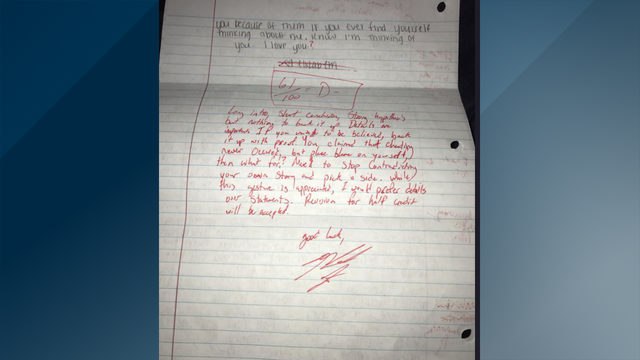 you because of them if you ever find yourself
thinking about me, know I'm thinking of
you I love you?
61/100 D-
Long intro, Short conclusion, Strong hypothesis
but nothing to back it up. Details are
important. If you want to be believed, back
it up with proof. You claimed that cheating
never occured, but place blame on yourself
then what for? Need to stop contradicting
your own story and pick a side. While
this gesture is appreciated, I would prefer details
over statements. Revision for half credit
will be accepted.
good luck,